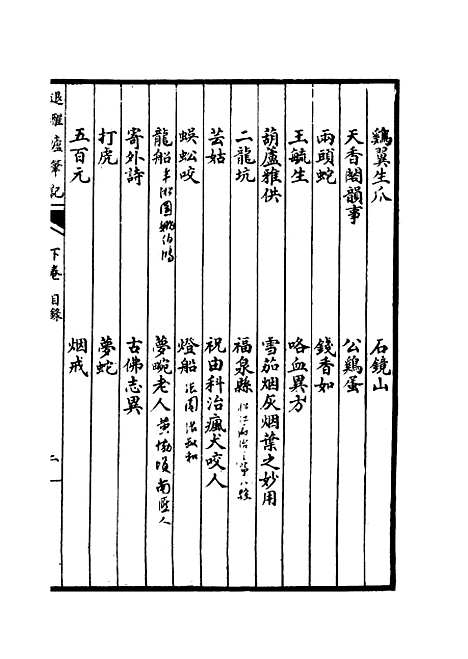 鷄翼生爪 石鏡山
天香閣韻事 公鷄蛋
兩頭蛇 錢香如
王毓生 咯血異方
葫蘆雅供 雪茄烟灰烟葉之妙用
二龍坑 福泉縣
芸姑 祝由科治瘋犬咬人
蜈蚣咬 燈船
龍船 夢畹老人 黃 南匯人
寄外詩 古佛志異
打虎 夢蛇
五百元 烟戒
退醒廬筆記 下卷 目錄 二